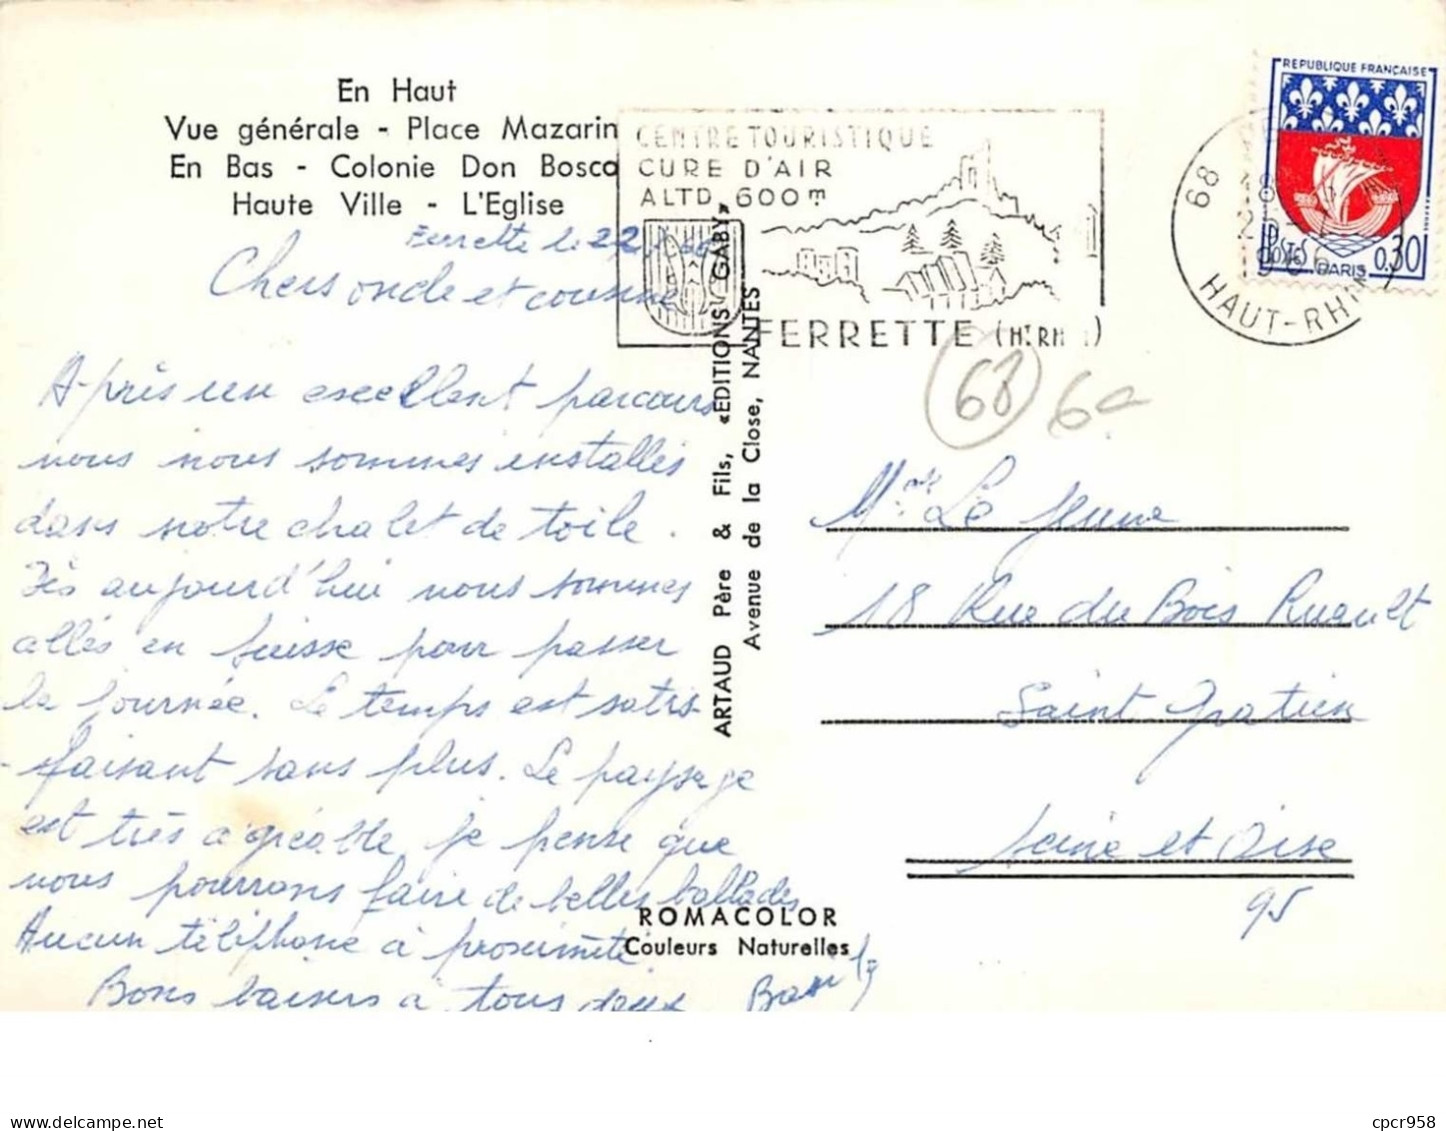 En Haut
Vue générale - Place Mazarin
En Bas - Colonie Don Bosco
Haute Ville - L'Eglise
CENTRE TOURISTIQUE
CURE D'AIR
ALTD. 600m
FERRETTE (HT RHIN)
REPUBLIQUE FRANÇAISE
POSTES
PARIS 0,30
68
HAUT-RHIN
Ferrette le 22
Chers oncle et cousine
Après un excellent parcours
nous nous sommes installés
dans notre chalet de toile.
Dès aujourd'hui nous sommes
allés en Suisse pour passer
la journée. Le temps est satis-
-faisant sans plus. Le paysage
est très agréable, je pense que
nous pourrons faire de belles ballades
Aucun téléphone à proximité.
Bons baisers à tous deux
ARTAUD Père & Fils, «EDITIONS GABY»
Avenue de la Close, NANTES
68
Le Jeune
18 Rue du Bois Ruault
Saint Gratien
Seine et Oise
95
ROMACOLOR
Couleurs Naturelles
cpcr958